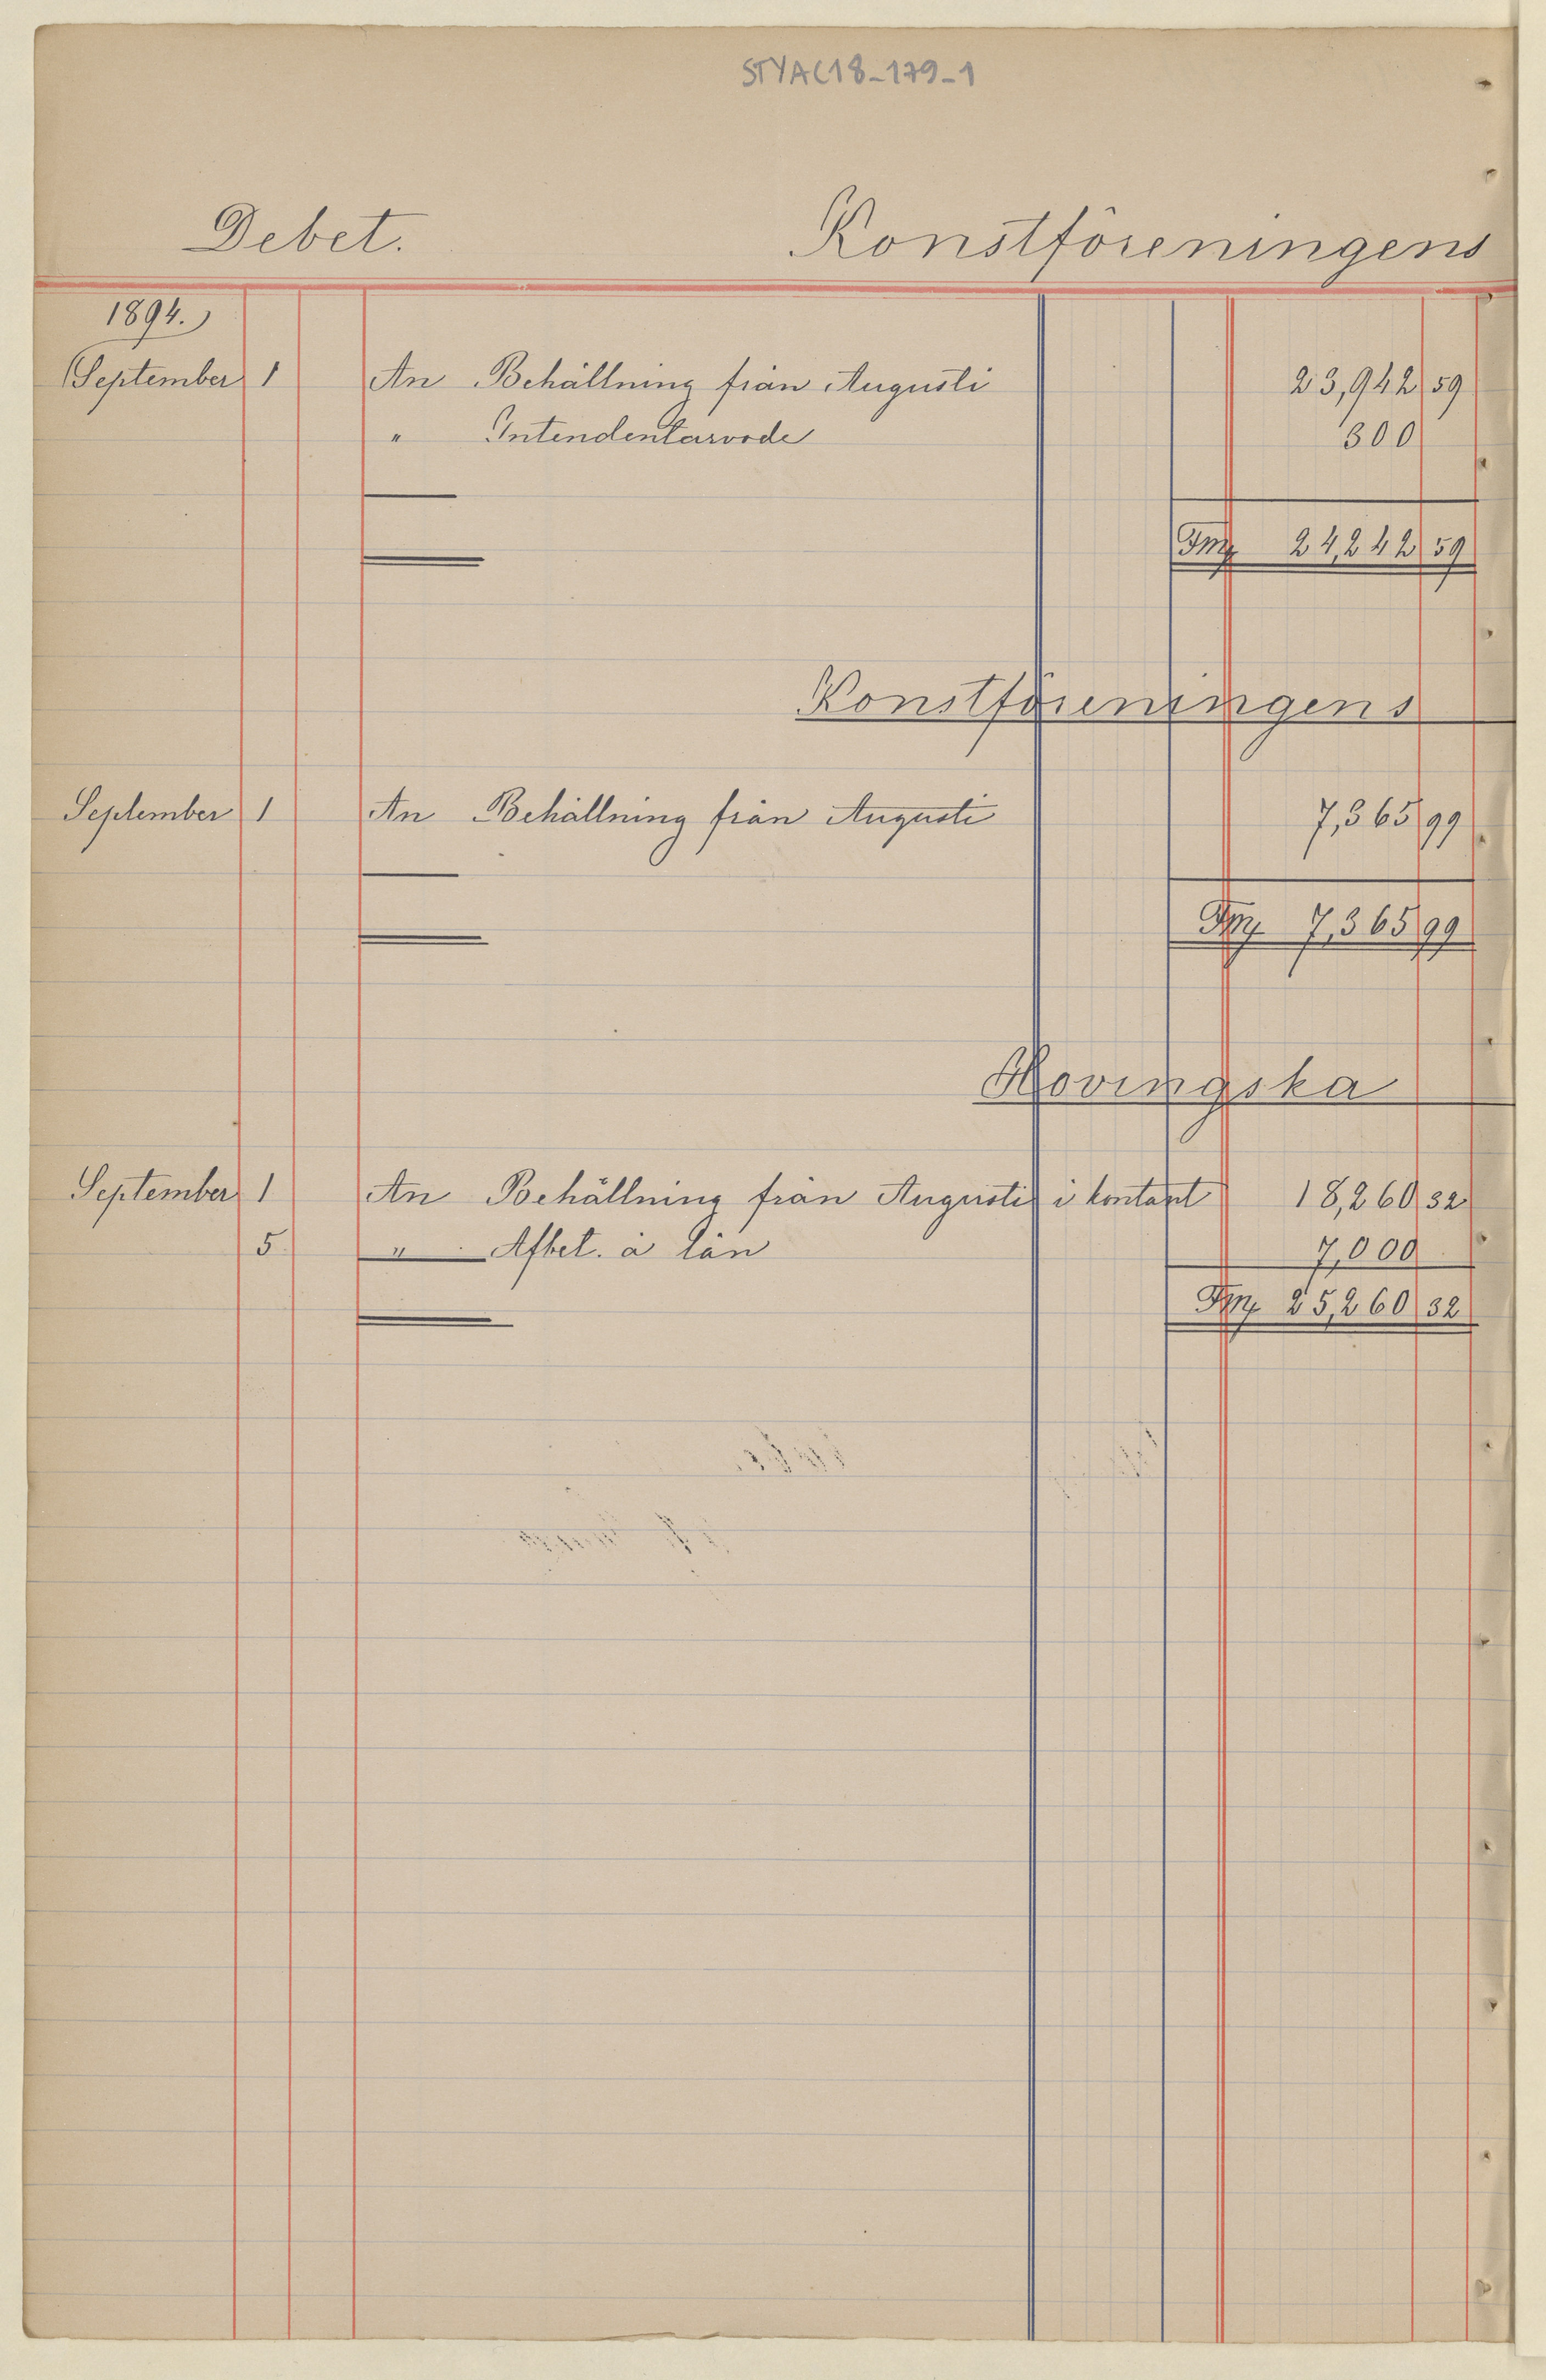 STYAC18-179-1
Debet. Konstföreningens
1894.
September 1 An Behållning från Augusti 23,942 59
" Intendentarvode 300
Fmg 24,242 59
Konstföreningens
September 1 An Behållning från Augusti 7,365 99
Fmg 7,365 99
Hovingska
September 1 An Behållning från Augusti i kontant 18,260 32
5. " Afbet. å lån 7,000
Fmg 25,260 32